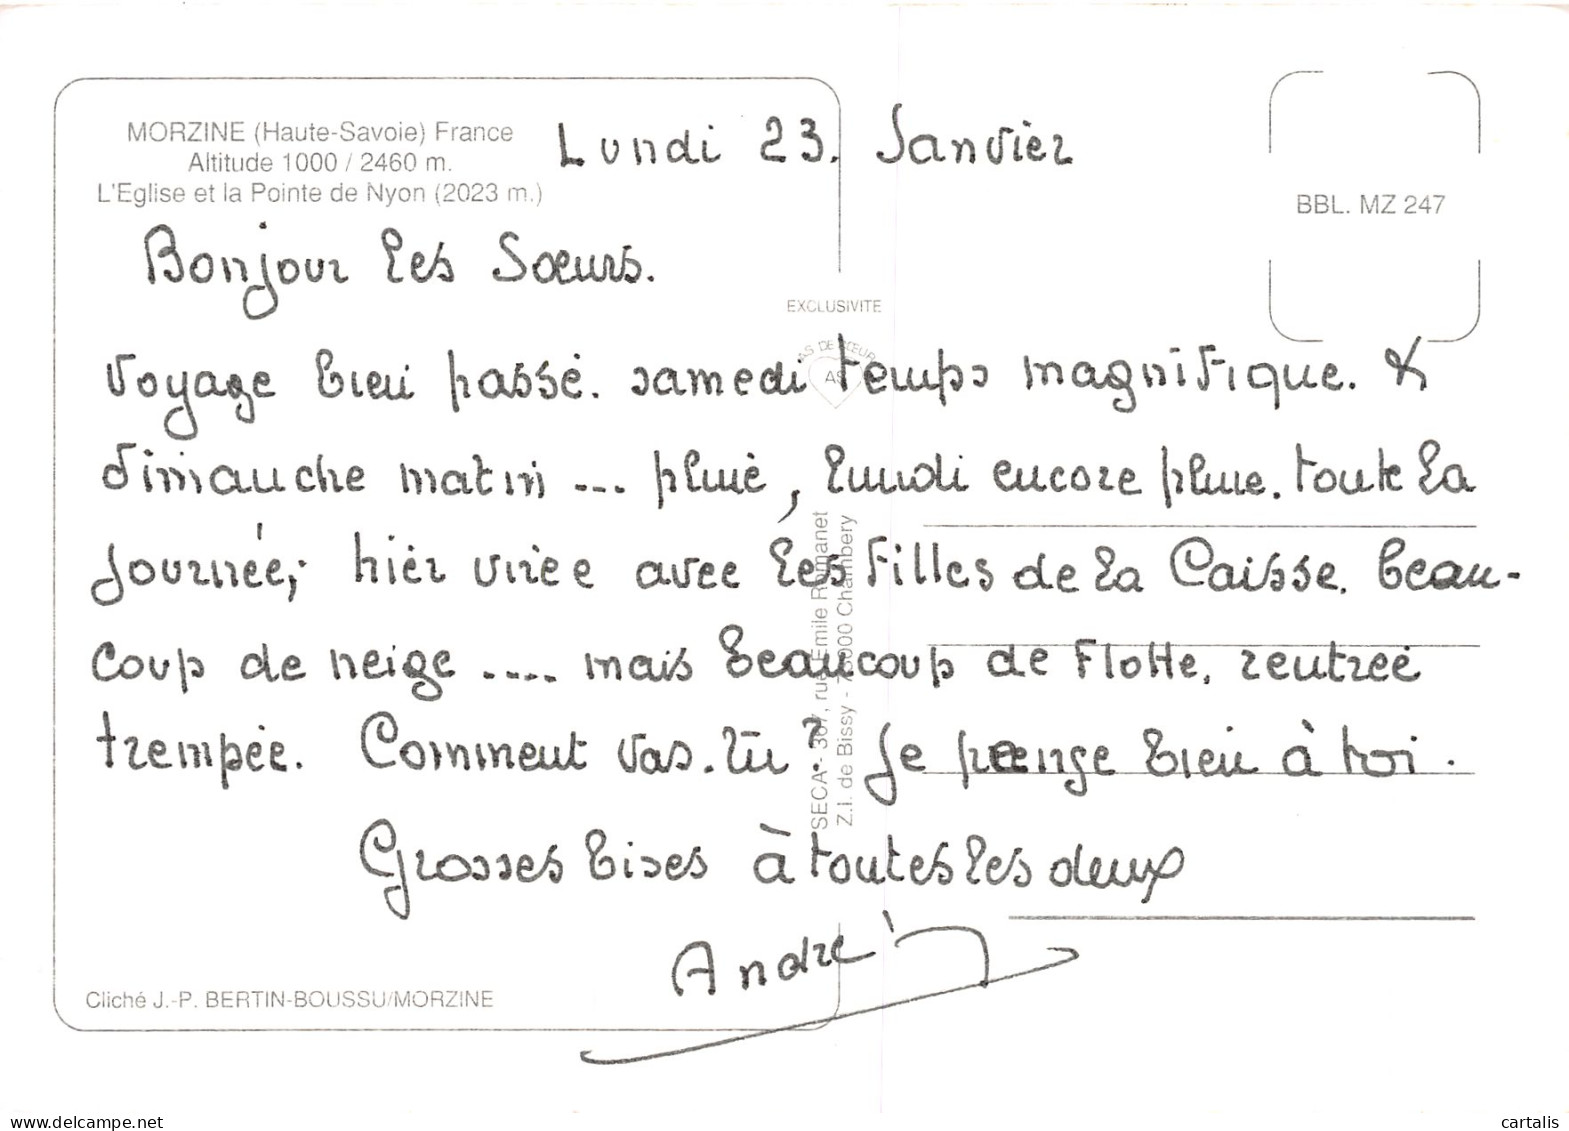 MORZINE (Haute-Savoie) France
Altitude 1000 / 2460 m.
L'Eglise et la Pointe de Nyon (2023 m.)
Lundi 23. Janvier
BBL. MZ 247
Bonjour les Sœurs.
EXCLUSIVITE
AS DE CŒUR
AS
Voyage bien passé. samedi temps magnifique. &
dimanche matin --- pluie, lundi encore pluie. toute la
journée, hier virée avec les filles de la Caisse. beau-
coup de neige .... mais beaucoup de flotte. rentrée
trempée. Comment vas-tu ? Je pense bien à toi.
Grosses bises à toutes les deux
André
SECA - 367, rue Emile Romanet
Z.I. de Bissy - 73000 Chambery
Cliché J.-P. BERTIN-BOUSSU/MORZINE
delcampe.net
cartalis